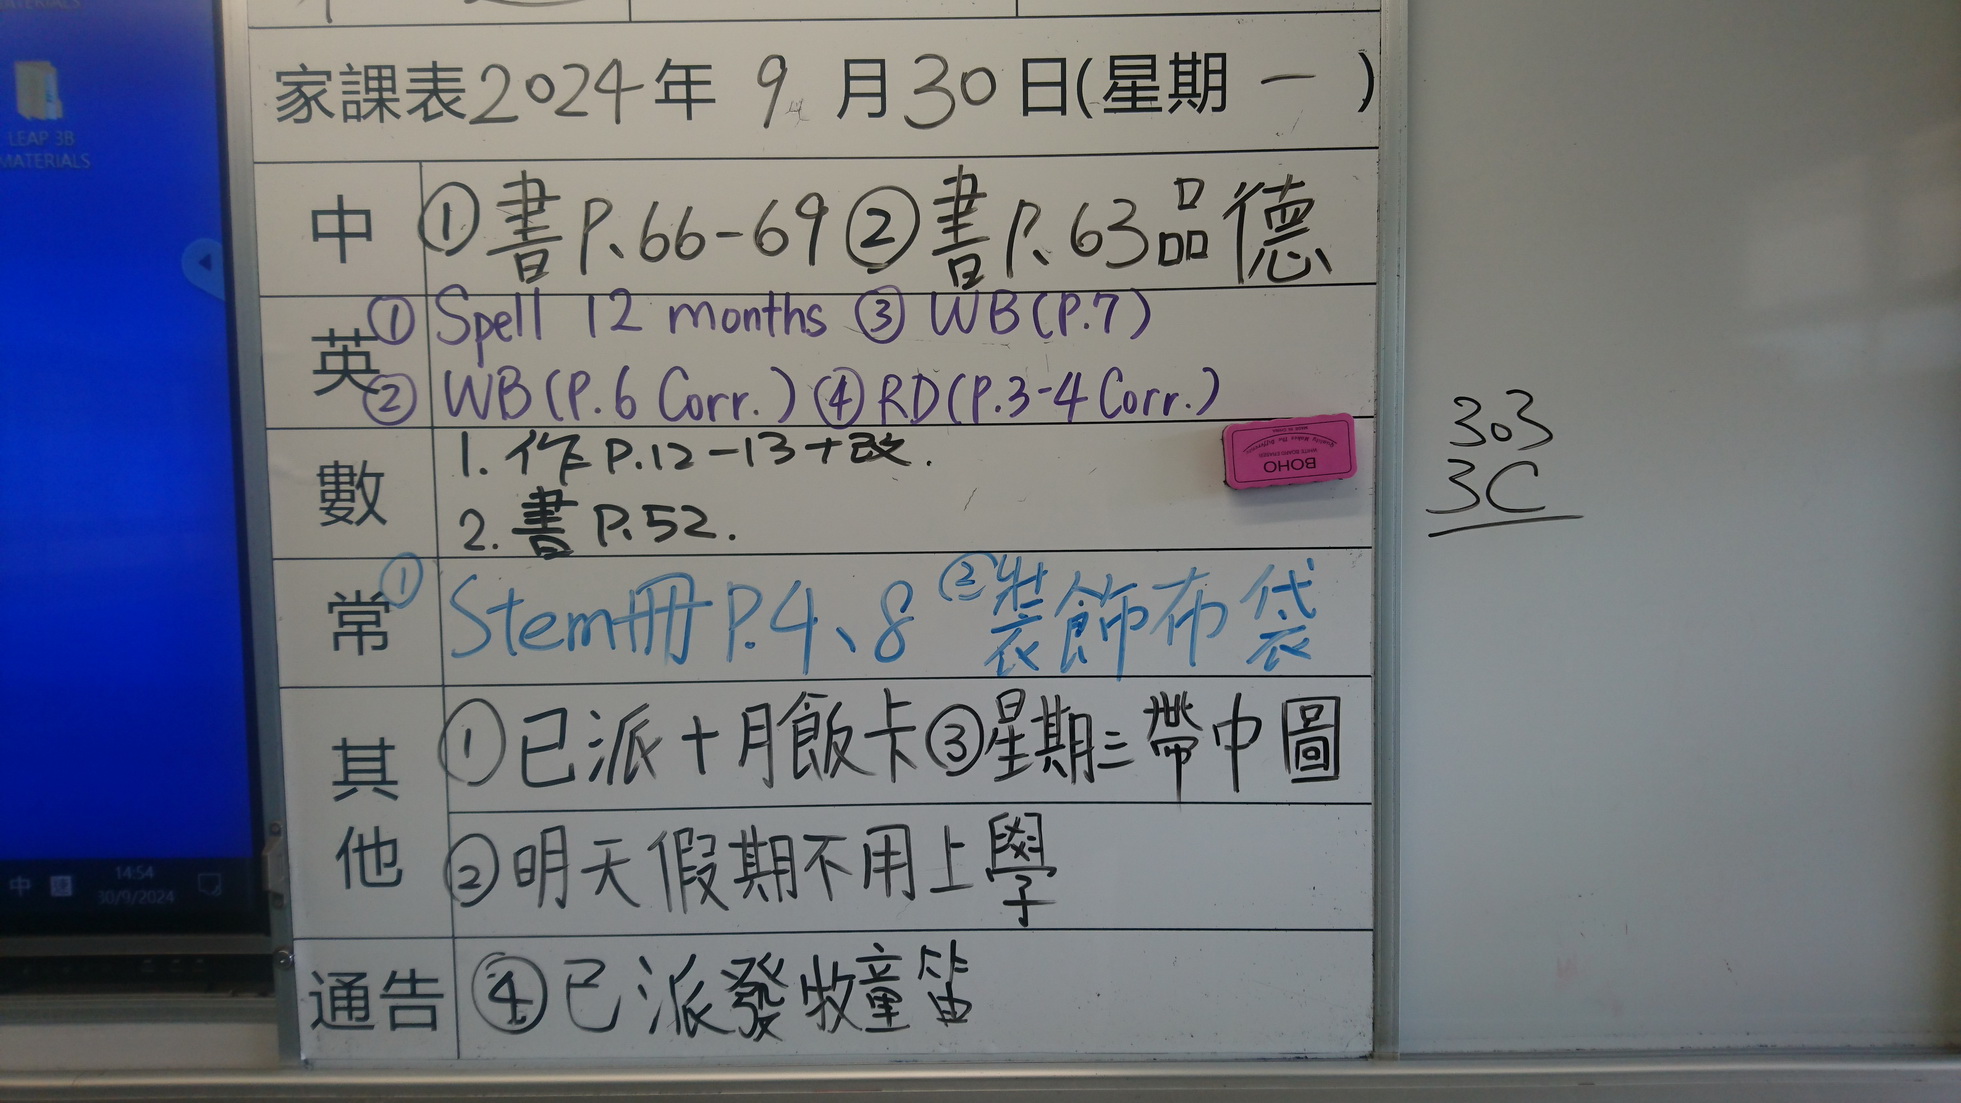 MATERIALS
LEAP 3B
MATERIALS
家課表2024年 9 月30日(星期 一 )
中 ①書P.66-69②書P.63品德
英 ① Spell 12 months ③ WB(P.7)
② WB(P.6 Corr.) ④RD(P.3-4 Corr.)
數 1. 作P.12-13+改.
2. 書P.52.
BOHO
常 ① Stem冊P.4、8 ②裝飾布袋
其他 ①已派十月飯卡③星期三帶中圖
②明天假期不用上學
通告 ④已派發牧童笛
303
3C
中
14:54
30/9/2024